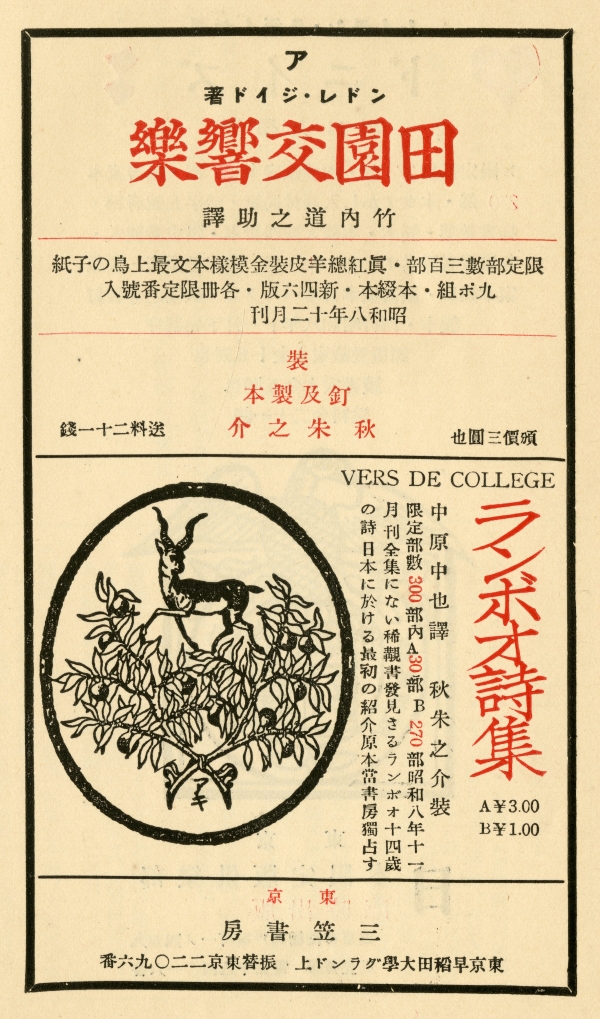 ア
ンドレ・ジイド著
田園交響樂
竹內道之助譯
限定部數三百部・眞紅總羊皮裝金模樣本文最上鳥の子紙
九ポ組・本綴本・新四六版・各冊限定番號入
昭和八年十二月刊
裝
釘及製本
秋朱之介
頒價三圓也
送料二十一錢
VERS DE COLLEGE
ランボオ詩集
A¥3.00
B¥1.00
中原中也譯 秋朱之介裝
限定部數300部內A30部B270部昭和八年十一
月刊全集にない稀覯書發見さるランボオ十四歲
の詩日本に於ける最初の紹介原本當書房獨占す
アキ
東京
三笠書房
東京早稻田大學グランド上 振替東京二二〇九六番